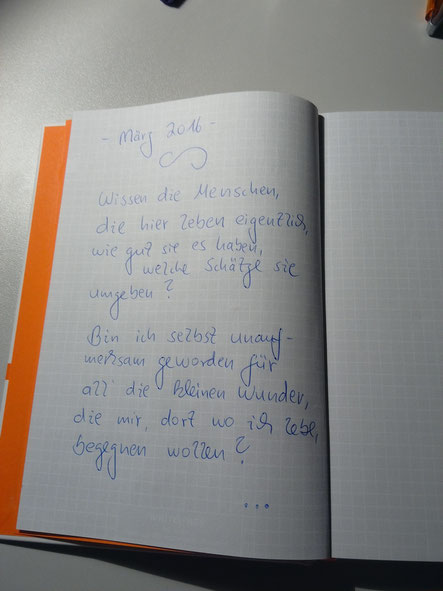 - März 2016 -
Wissen die Menschen,
die hier leben eigentlich,
wie gut sie es haben,
welche Schätze sie
umgeben?
Bin ich selbst unauf-
merksam geworden für
all die kleinen Wunder,
die mir, dort wo ich lebe,
begegnen wollen?
...